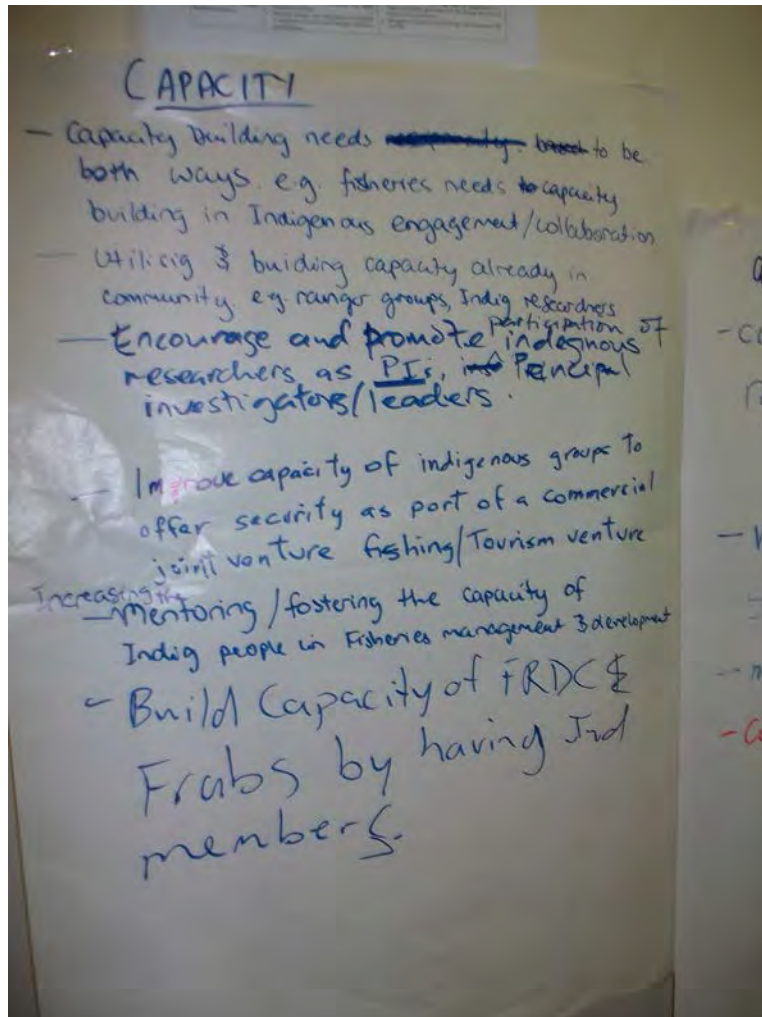 CAPACITY
- Capacity building needs to be
both ways. e.g. fisheries needs capacity
building in Indigenous engagement/collaboration
- Utilisig & buiding capacity already in
community. e.g. ranger groups, Indig researchers
- Encourage and promote participation of indegnous
researchers as PIs, Principal
investigators/leaders.
- Improve capacity of indigenous groups to
offer security as part of a commercial
joint venture fishing/Tourism venture
Increasing the
- Mentoring/fostering the capacity of
Indig people in Fisheries management & development
- Build Capacity of FRDC &
Frabs by having Ind
members.